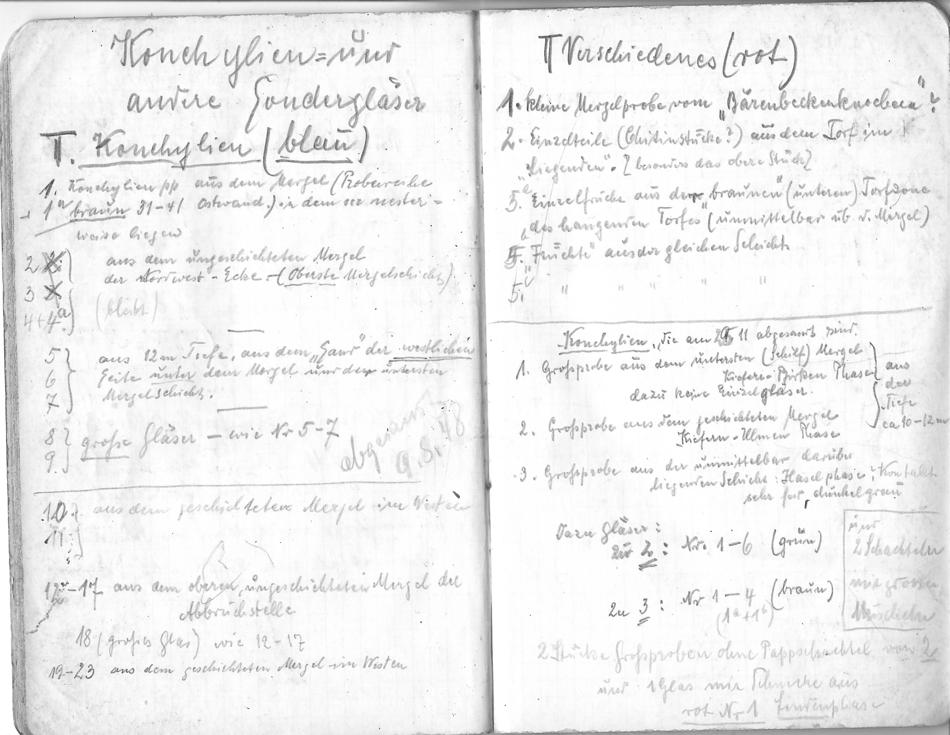 Konchylien- und
andere Sondergläser
I. Konchylien (blau)
1. Konchylien pp aus dem Mergel (Probereihe
1a braun 31-41 Ostwand,) in dem sie nester-
weise liegen
2 aus dem ungeschichteten Mergel
3 der Nordwest-Ecke - (Oberste Mergelschicht)
4+4a (bleibt)
5 aus 12 m Tiefe, aus dem „Sand" der westlichen
6 Seite unter dem Mergel und der untersten
7 Mergelschicht.
8 große Gläser - wie Nr 5-7
9.
abgesandt
9.3.48
10. aus dem geschichteten Mergel im Westen
11.
12-17 aus dem oberen ungeschichteten Mergel der
Abbruchstelle
18 (großes Glas) wie 12-17
19-23 aus dem geschichteten Mergel im Westen
II Verschiedenes (rot)
1. kleine Mergelprobe vom „Bärenbeckenknochen"?
2. Einzelteile (Chitinstücke?) aus dem Torf im
„Liegenden". [besonders das obere Stück]
3. Einzelfrüchte aus der „braunen" (unteren) Torfzone
„des hangenden Torfes" (unmittelbar üb. d. Mergel)
4. „Früchte" aus der gleichen Schicht.
5. " " " "
Konchylien, die am 11 abgesandt sind.
1. Großprobe aus dem untersten (Schilf) Mergel
Kiefern-Birken Phase
dazu keine Einzelgläser.
aus
der
Tiefe
ca 10-12 m
2. Großprobe aus dem geschichteten Mergel
Kiefern-Ulmen Phase
3. Großprobe aus der unmittelbar darüber
liegenden Schicht: Haselphase, Kontakt
sehr fos, dunkelgrau
Dazu Gläser:
zu 2: Nr. 1-6 (grün)
zu 3: Nr 1-4 (braun)
(1a+1b)
und
2 Schachteln
mit grossen
Muscheln
2 Stücke Großproben ohne Pappschachtel von 2
und 1 Glas mit aus
rot Nr 1 Lindenphase